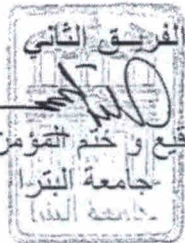 الفريق الثاني
توقيع و ختم المؤمن
جامعة البترا
جامعة البترا